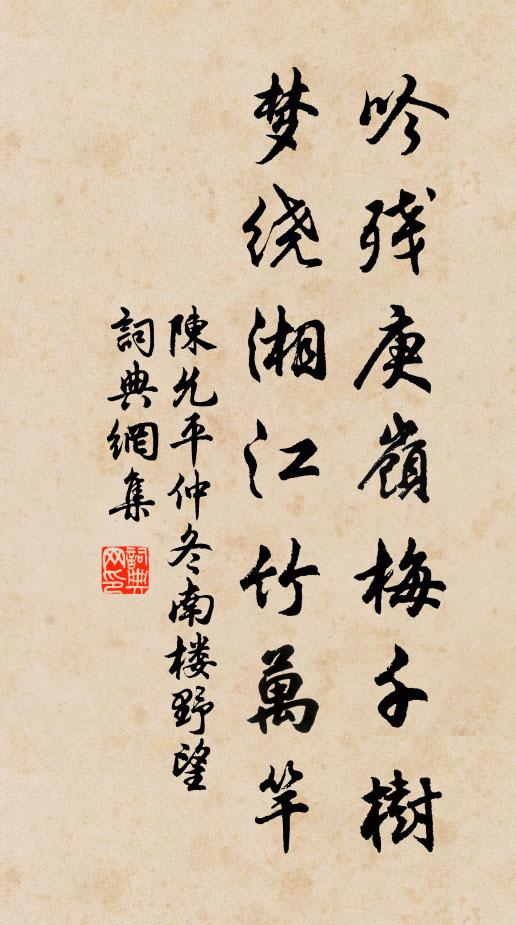 吟残庾嶺梅千樹
梦绕湘江竹萬竿
陳允平仲冬南楼野望
詞典網集
詞典
网印